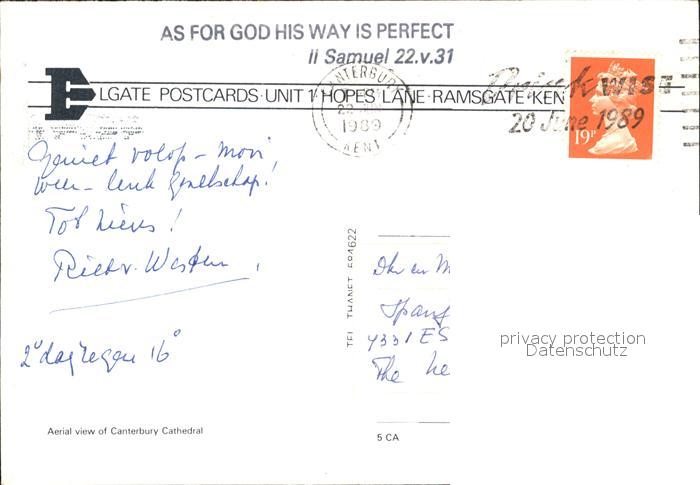 AS FOR GOD HIS WAY IS PERFECT
II Samuel 22.v.31
ELGATE POSTCARDS·UNIT 1·HOPES LANE·RAMSGATE·KEN
1989
KENT
20 June 1989
19P
Geniet volop – mooi
weer – leuk gezelschap!
Tot ziens!
Riet v. Westen
2e dag regen 16°
TEL THANET 584622
Dhr en M
Spanj
4331 ES
The Ne
privacy protection
Datenschutz
Aerial view of Canterbury Cathedral
5 CA